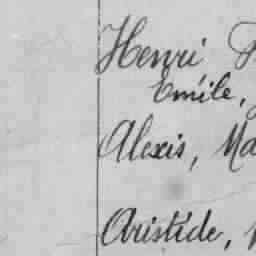 Henri
Emile,
Alexis, Ma
Aristide,